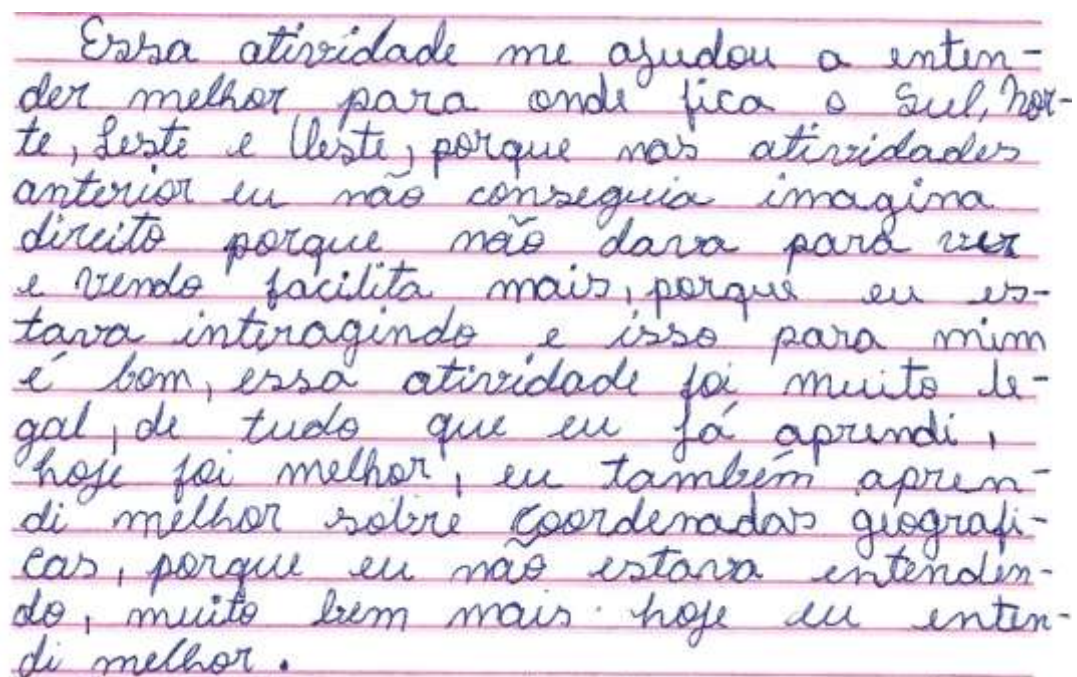 Essa atividade me ajudou a enten-
der melhor para onde fica o Sul, Nor-
te, Leste e Oeste, porque nas atividades
anterior eu não conseguia imagina
direito porque não dava para ver
e vendo facilita mais, porque eu es-
tava interagindo e isso para mim
é bom, essa atividade foi muito le-
gal, de tudo que eu já aprendi,
hoje foi melhor, eu também apren-
di melhor sobre coordenadas geografi-
cas, porque eu não estava entenden-
do, muito bem mais hoje eu enten-
di melhor.